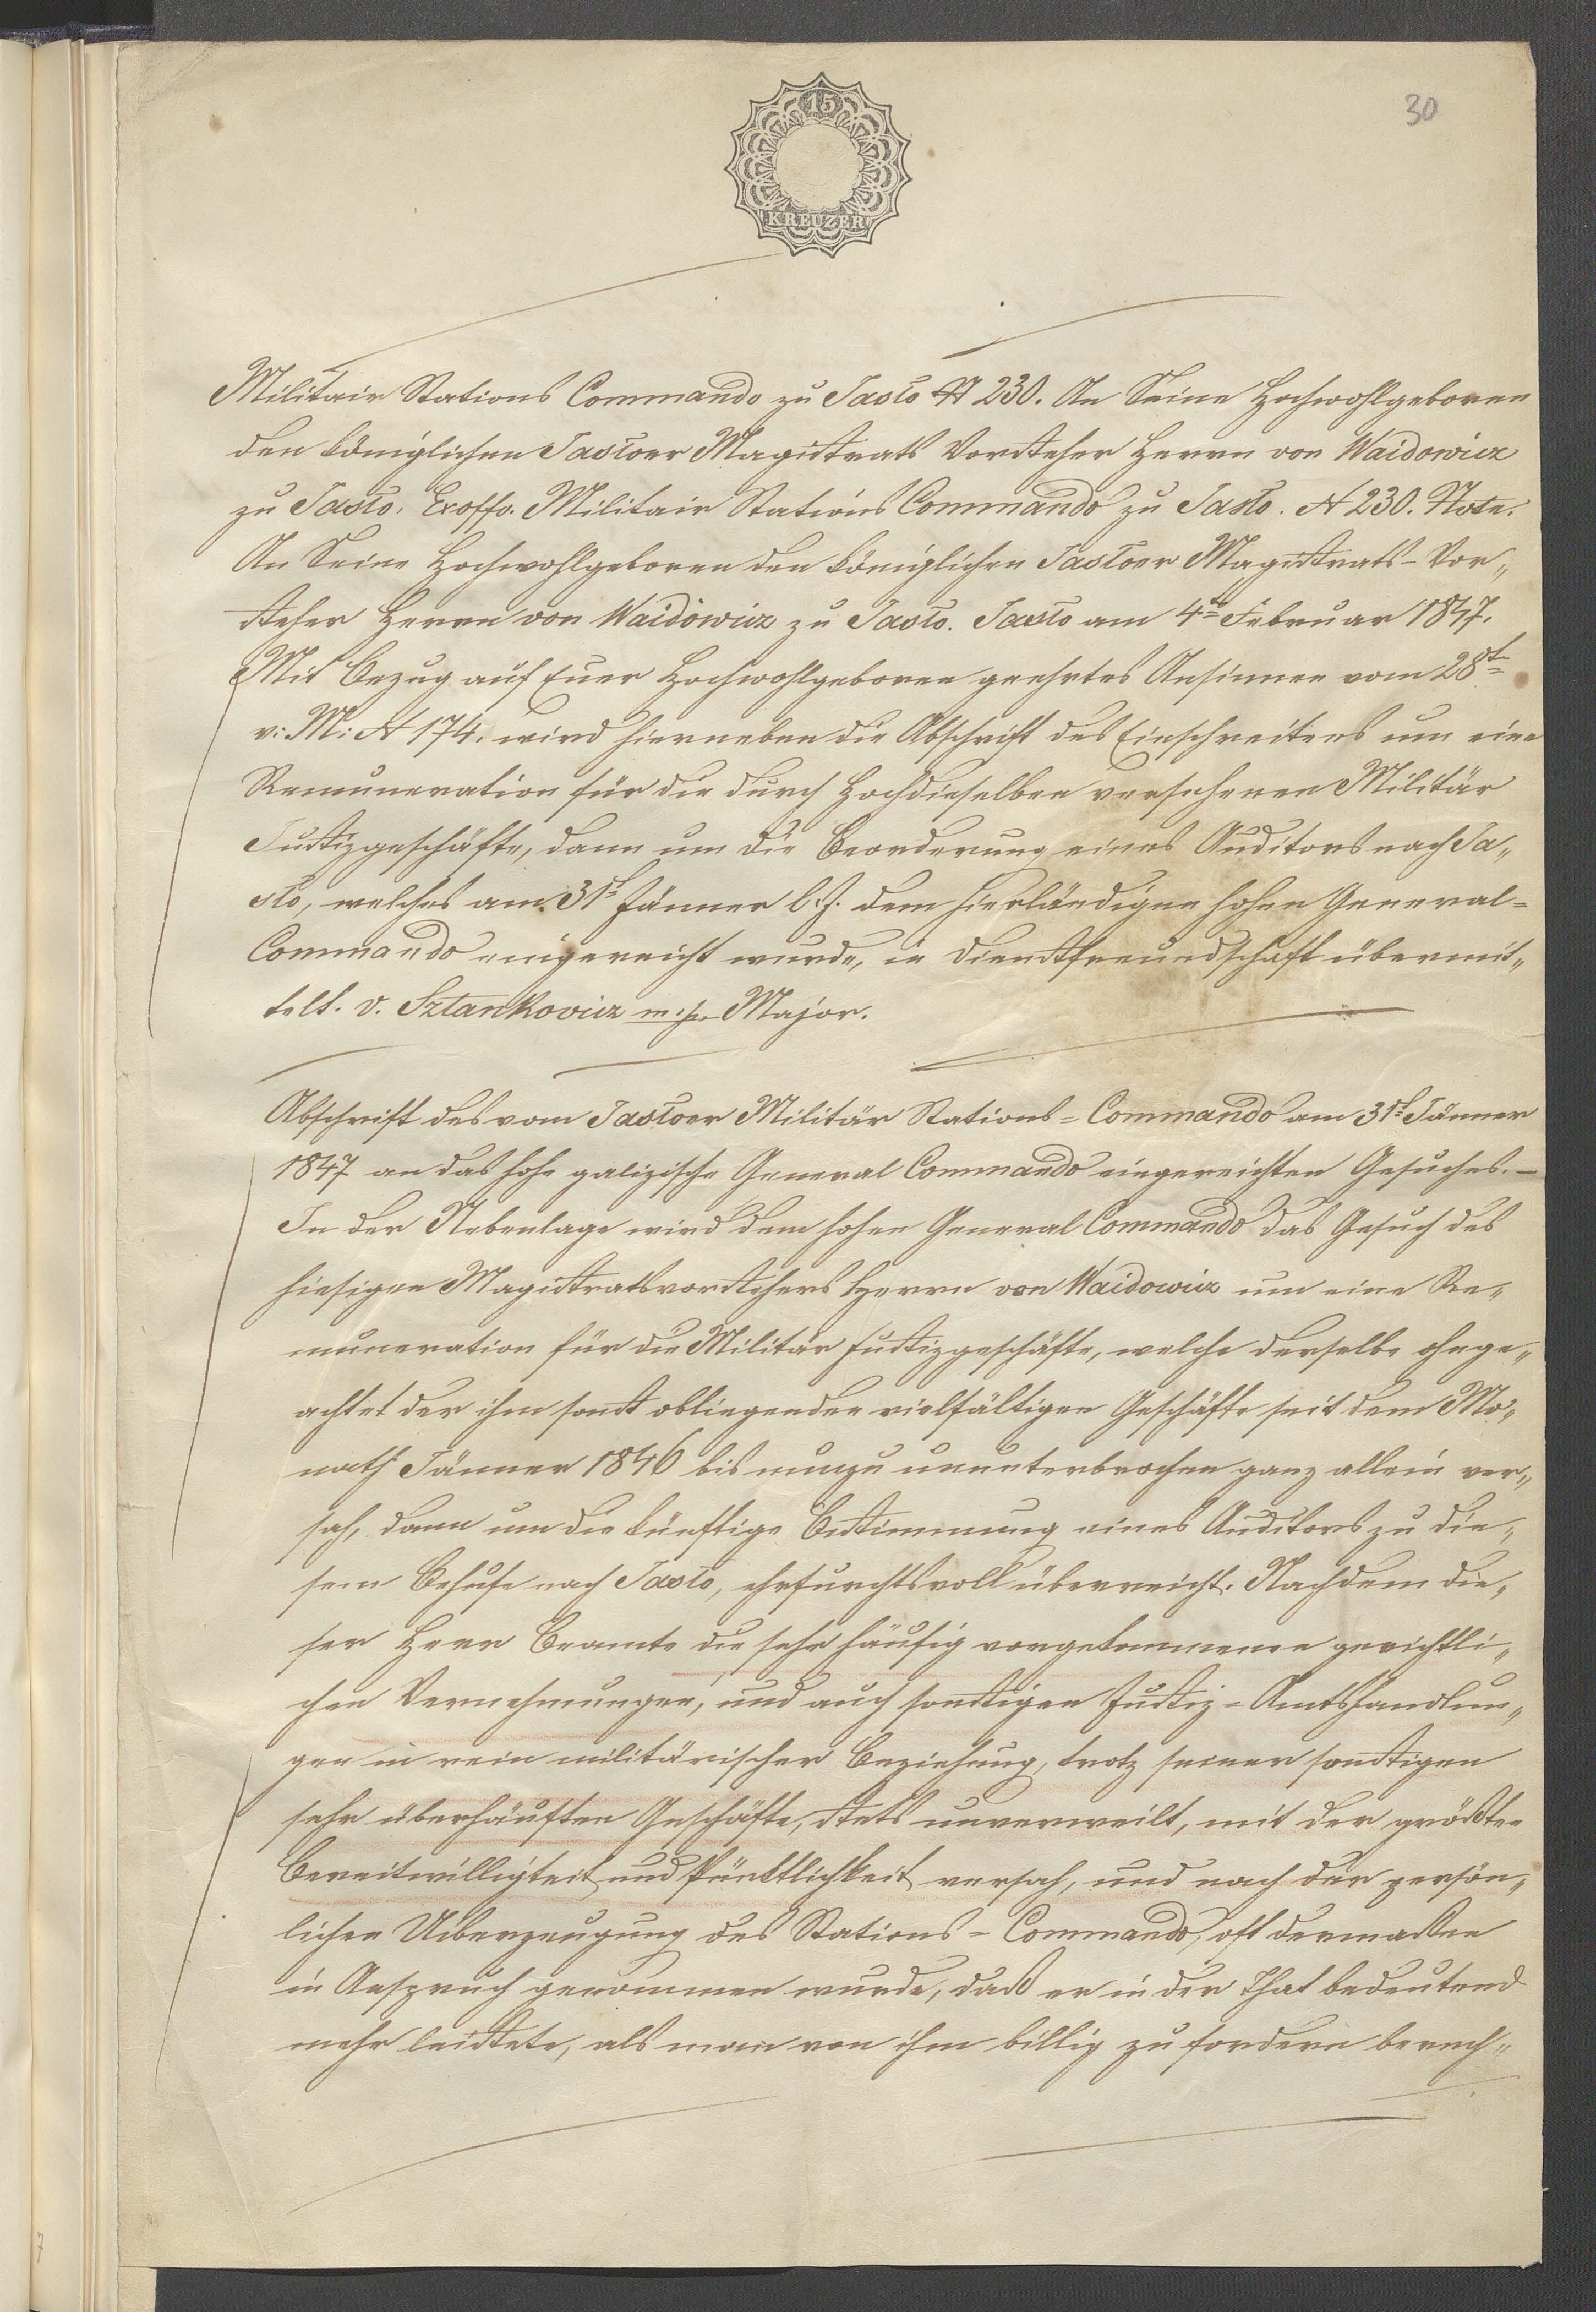 15
KREUZER
30
Militair Stations Commando zu Jasło N 230. An Seine Hochwohlgeboren
den königlichen Jasłoer Magistrats Vorsteher Herrn von Waidowicz
zu Jasło. Exoffo. Militair Stations Commando zu Jasło. N 230. Note.
An Seine Hochwohlgeboren den königlichen Jasłoer Magistrats-Vor„
steher Herrn von Waidowicz zu Jasło. Jasło am 4tn Februar 1847.
Mit Bezug auf Euer Hochwohlgeboren geehrtes Ansinnen vom 28tn
v: M: N 174. wird hierneben die Abschrift des Einschreitens um eine
Remuneration für die durch Hochdieselben versehenen Militär
Justizgeschäfte, dann um die Beorderung eines Auditors nach Ja„
sło, welches am 31t Jänner l. J. dem hierländigen hohen General=
Commando eingereicht wurde, in Dienstfreundschaft übermit„
telt. v. Sztankovicz m. p. Major.
Abschrift des vom Jasłoer Militär Stations=Commando am 31t Jänner
1847 an das hohe galizische General Commando eingereichten Gesuches. —
In der Nebenlage wird dem hohen General Commando das Gesuch des
hiesigen Magistratsvorstehers Herrn von Waidowicz um eine Re„
muneration für die Militär Justizgeschäfte, welche derselbe ohnge„
achtet der ihm sonst obliegenden vielfältigen Geschäfte seit dem Mo„
nath Jänner 1846 bis nunzu ununterbrochen ganz allein ver„
sah, dann um die künftige Bestimmung eines Auditors zu die„
sem Behufe nach Jasło, ehrfurchtsvoll überreicht. Nachdem die„
ser Herr Beamte die sehr häufig vorgekommenen gerichtli„
chen Vernehmungen, und auch sonstigen Justiz=Amtshandlun„
gen in rein militärischer Beziehung, trotz seiner sonstigen
sehr überhäuften Geschäfte, stets unverweilt, mit der größten
Bereitwilligkeit und Pünktlichkeit versah, und nach der persön„
lichen Uiberzeugung des Stations=Commando, oft dermassen
in Anspruch genommen wurde, daß er in der That bedeutend
mehr leistete, als man von ihm billig zu fordern berech„